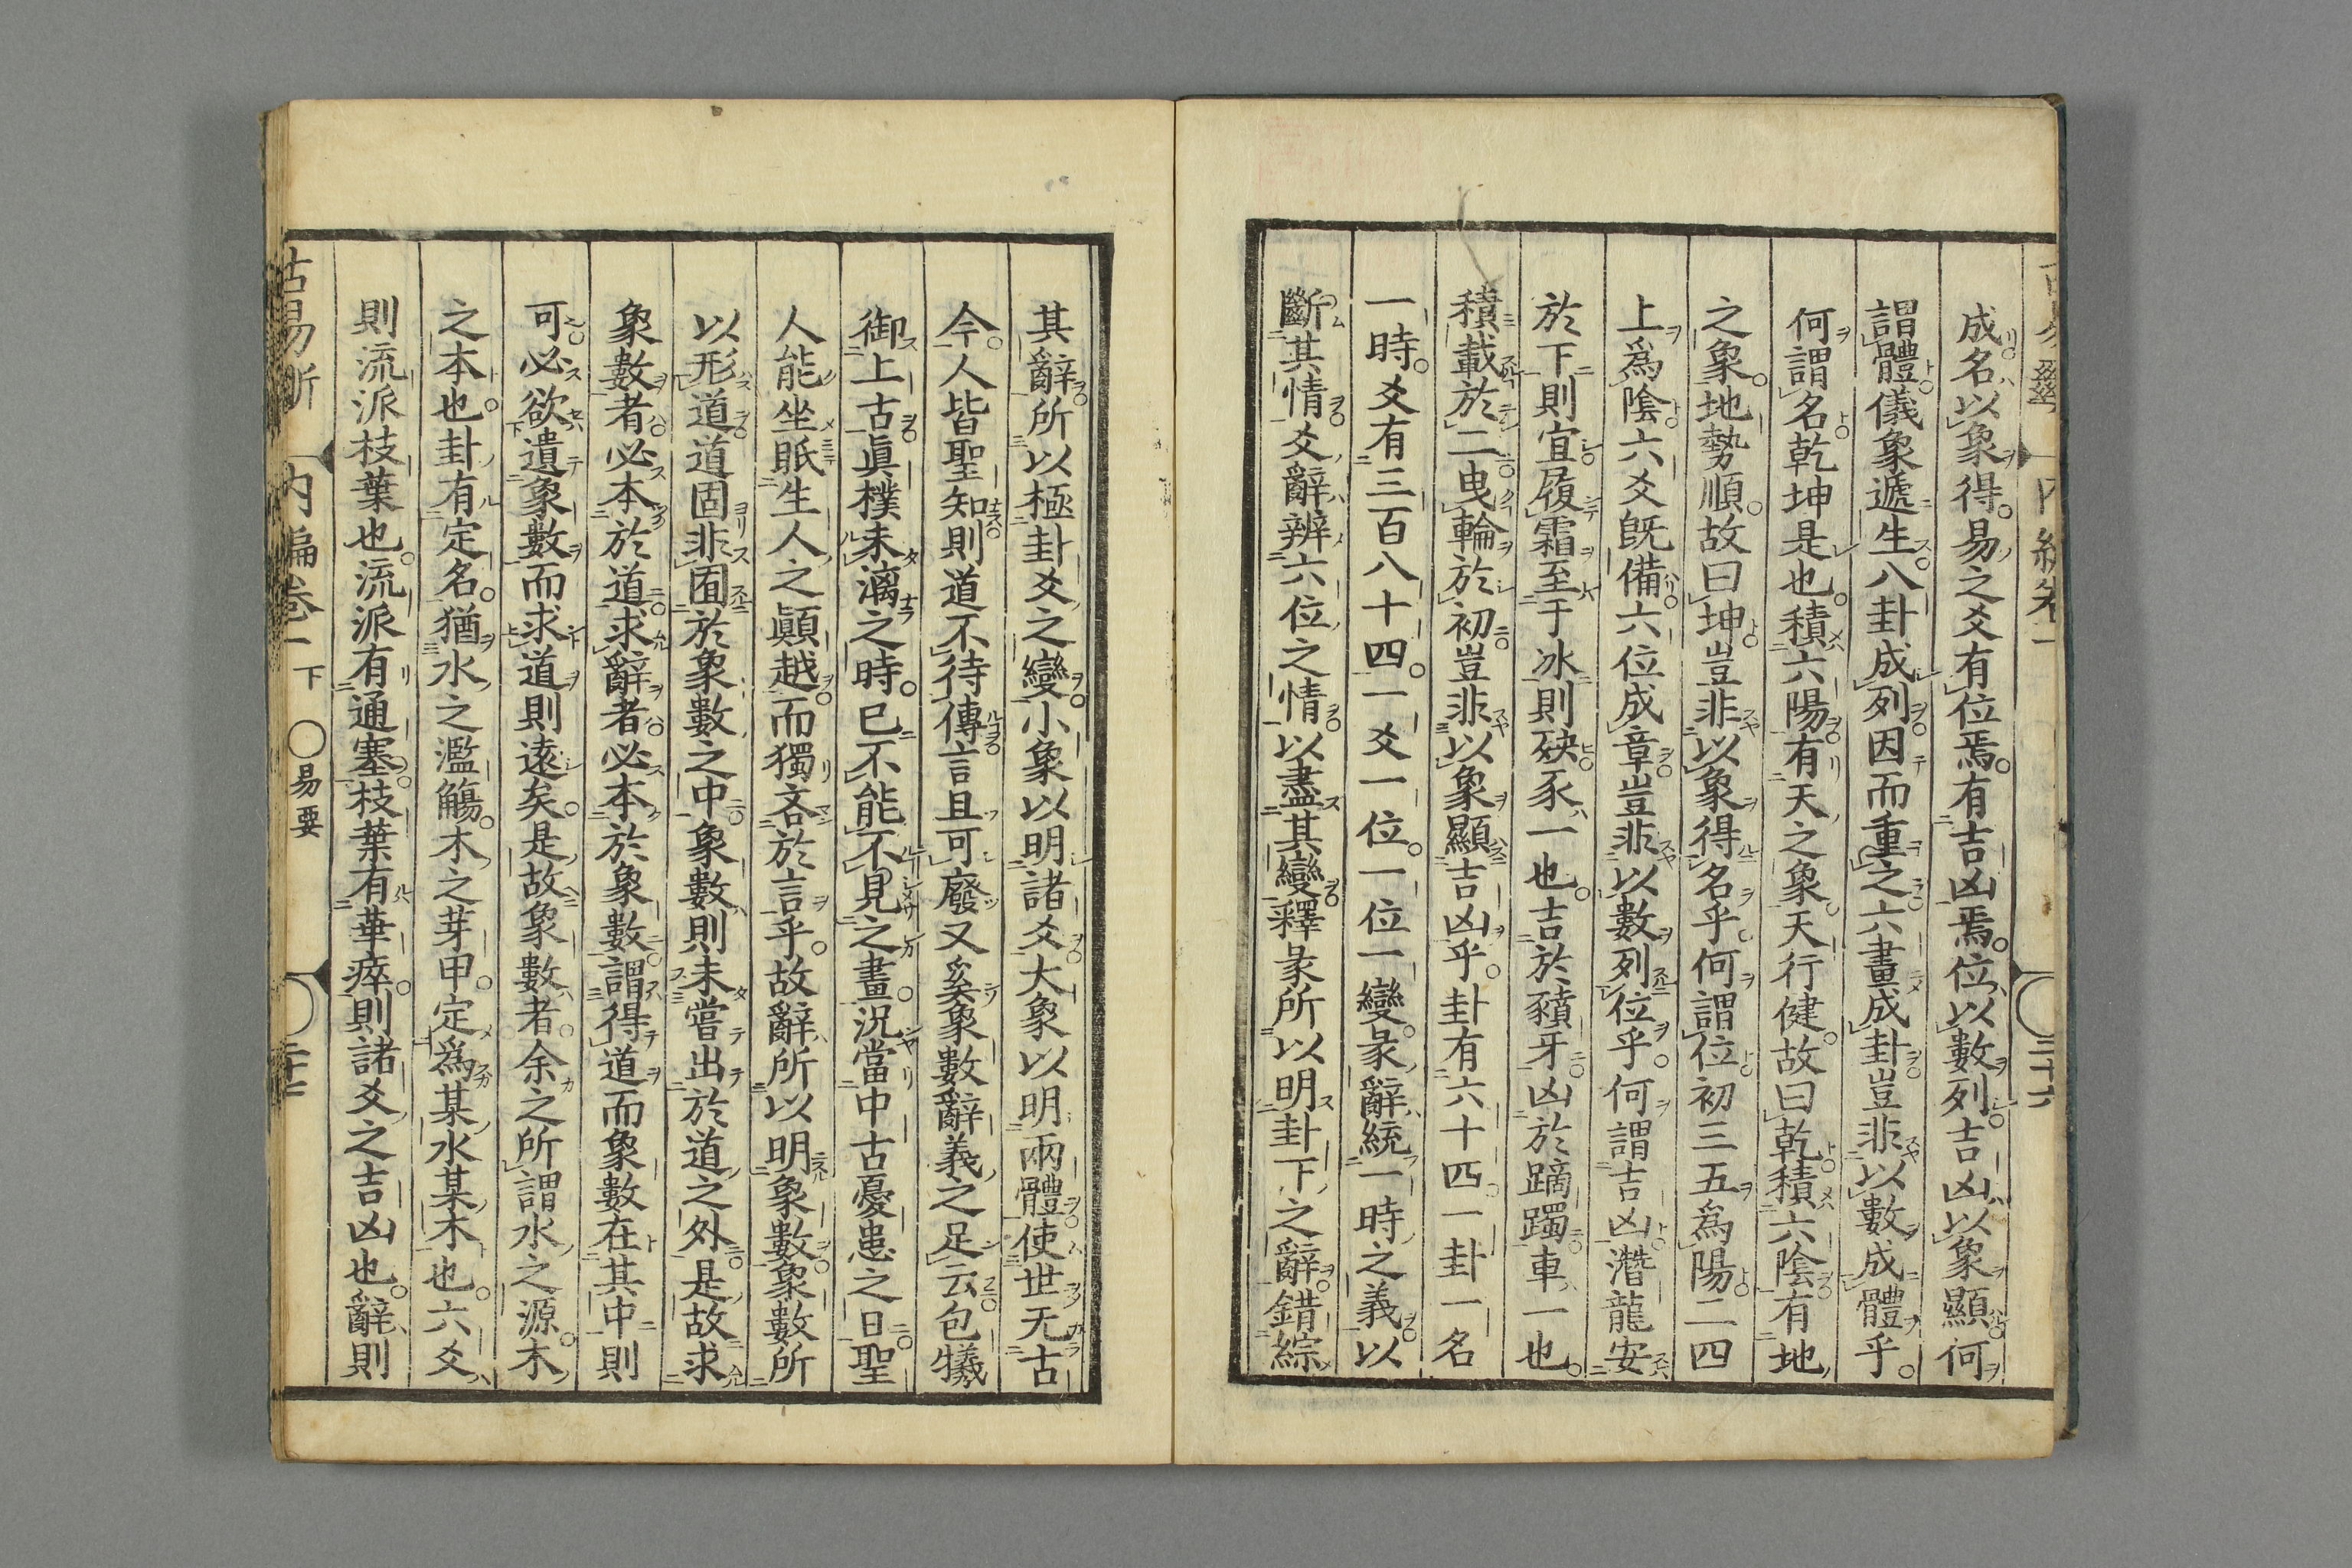 成名以象得易之爻有位焉有吉凶焉位以數列吉凶以象顯何
謂體儀象遞生八卦成列因而重之六畫成卦豈非以數成體乎
何謂名乾坤是也積六陽有天之象天行健故曰乾積六陰有地
之象地勢順故曰坤豈非以象得名乎何謂位初三五為陽二四
上為陰六爻既備六位成章豈非以數列位乎何謂吉凶潛龍安
於下則宜履霜至于冰則殃豕一也吉於豶牙凶於蹢躅車一也
積載於二曳輪於初豈非以象顯吉凶乎卦有六十四一卦一名
一時爻有三百八十四一爻一位一位一變彖辭統一時之義以
斷其情爻辭辨六位之情以盡其變釋彖所以明卦下之辭錯綜
其辭所以極卦爻之變小象以明諸爻大象以明兩體使世无古
今人皆聖知則道不待傳言且可廢又奚象數辭義之足云包犧
御上古眞樸未漓之時已不能不見之畫況當中古憂患之日聖
人能坐眡生人之顚越而獨吝於言乎故辭所以明象數象數所
以形道道固非囿於象數之中象數則未嘗出於道之外是故求
象數者必本於道求辭者必本於象數謂得道而象數在其中則
可必欲遺象數而求道則遠矣是故象數者余之所謂水之源木
之本也卦有定名猶水之濫觴木之芽甲定為某水某木也六爻
則流派枝葉也流派有通塞枝葉有華瘁則諸爻之吉凶也辭則
古易斷 內編卷一下 ○易要